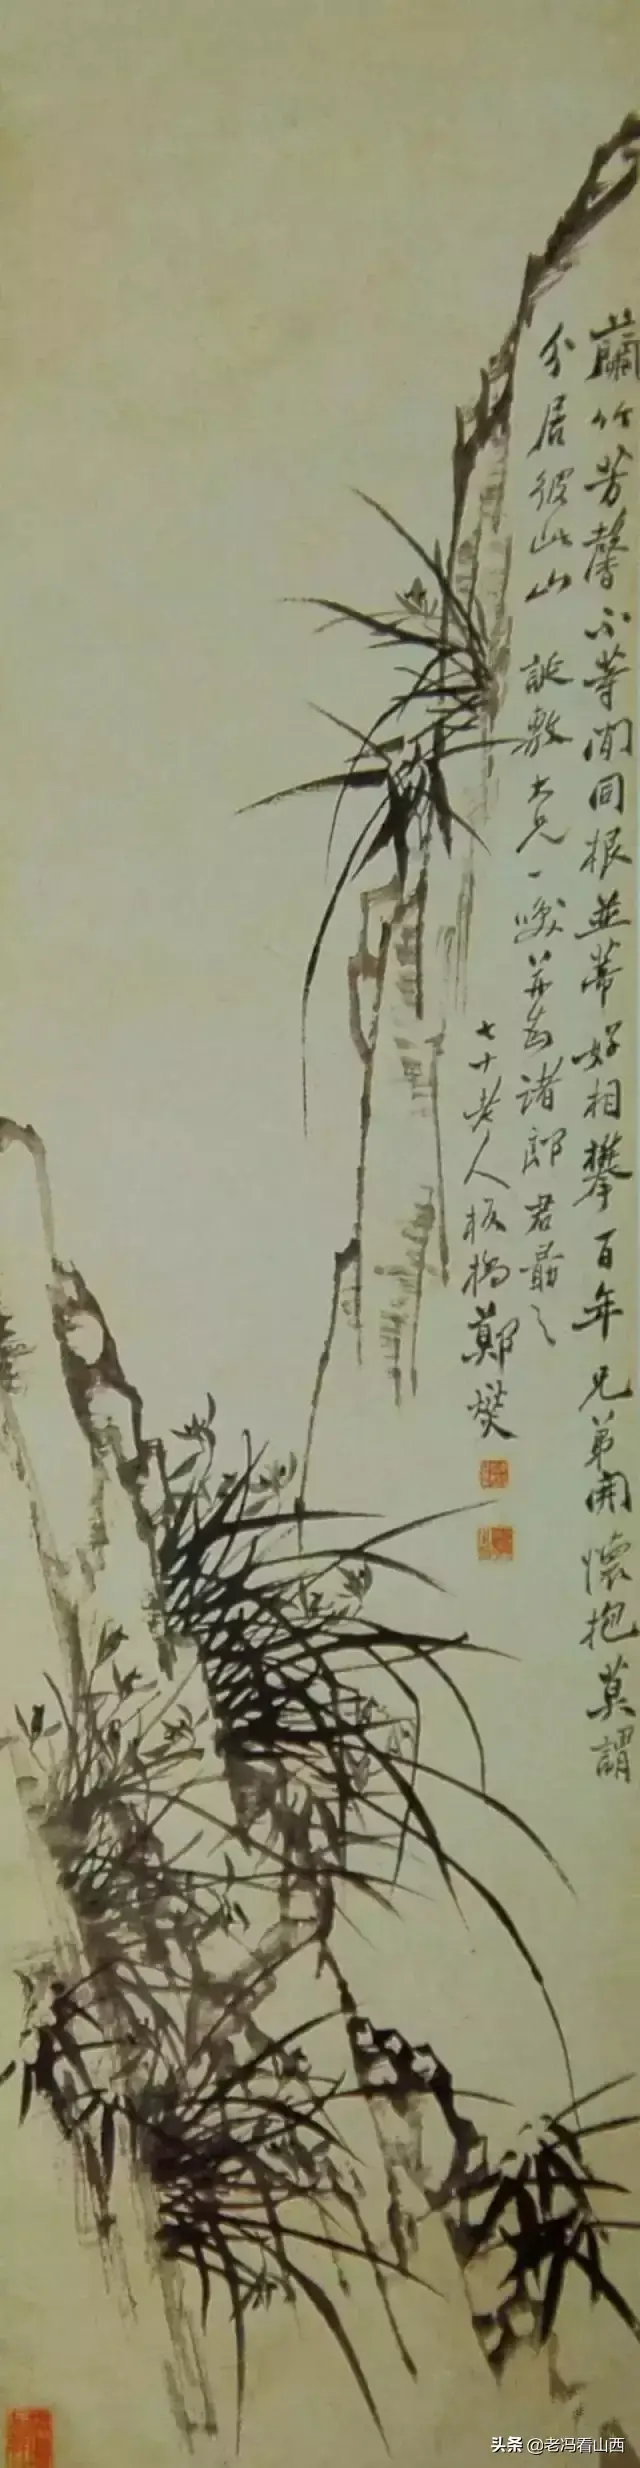 蘭竹芳馨不等閒同根並蒂好相攀百年兄弟開懷抱莫謂
分居彼此山 誕敷大兄一咲并為諸郎君勗之
七十老人板橋鄭燮
头条 @老冯看山西